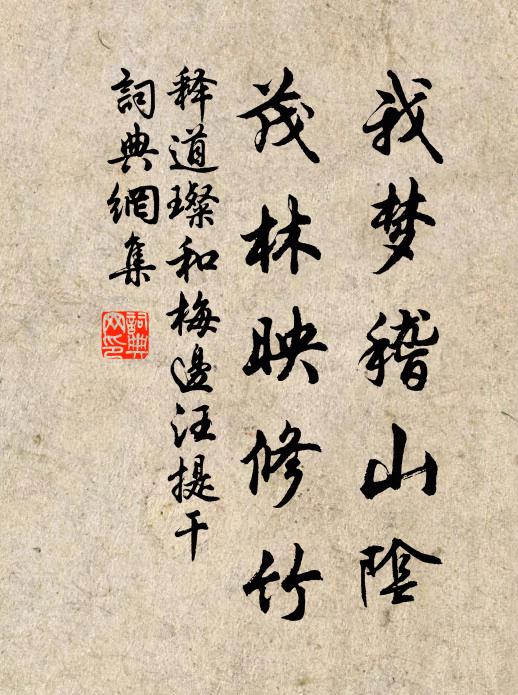 我梦稽山陰
茂林映修竹
释道璨和梅邊汪提干
詞典網集
詞典
网印